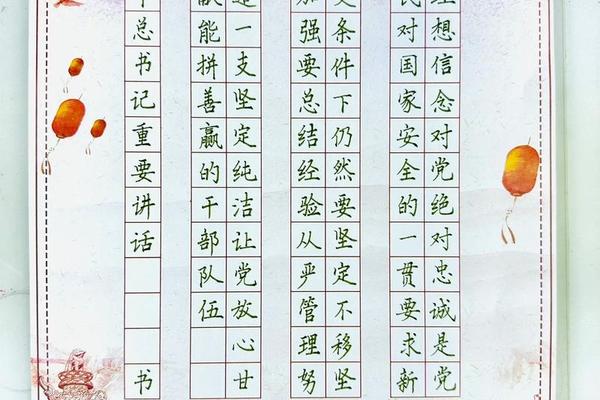 想信念对党绝对忠诚是党
民对国家安全的一贯要求新
条件下仍然要坚定不移坚
加强要总结经验从严管理努
造一支坚定纯洁让党放心甘
献能拼善赢的干部队伍
总书记重要讲话 书